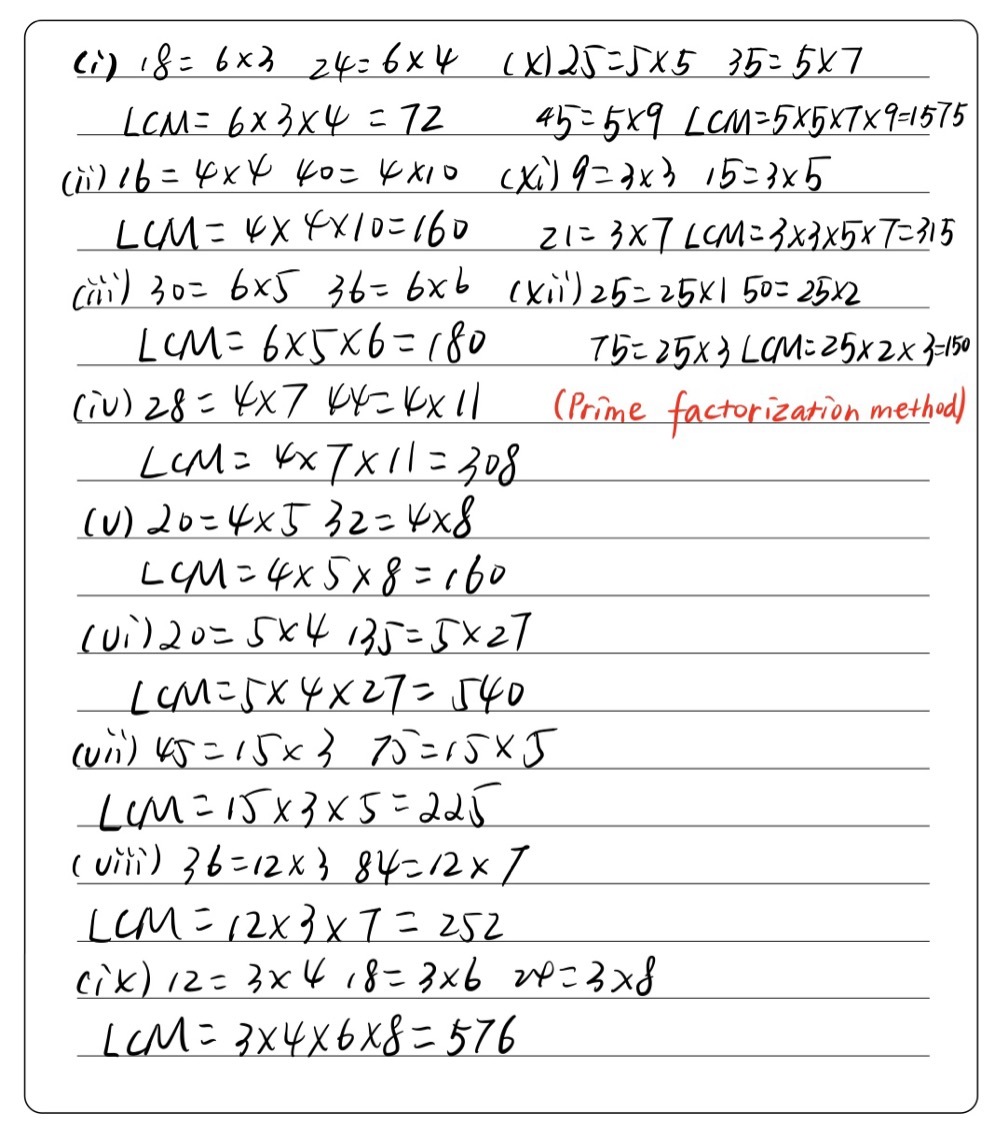 (i) 18 = 6×3 24 = 6×4
LCM = 6×3×4 = 72
(ii) 16 = 4×4 40 = 4×10
LCM = 4×4×10 = 160
(iii) 30 = 6×5 36 = 6×6
LCM = 6×5×6 = 180
(iv) 28 = 4×7 44 = 4×11
LCM = 4×7×11 = 308
(v) 20 = 4×5 32 = 4×8
LCM = 4×5×8 = 160
(vi) 20 = 5×4 135 = 5×27
LCM = 5×4×27 = 540
(vii) 45 = 15×3 75 = 15×5
LCM = 15×3×5 = 225
(viii) 36 = 12×3 84 = 12×7
LCM = 12×3×7 = 252
(ix) 12 = 3×4 18 = 3×6 24 = 3×8
LCM = 3×4×6×8 = 576
(x) 25 = 5×5 35 = 5×7
45 = 5×9 LCM = 5×5×7×9 = 1575
(xi) 9 = 3×3 15 = 3×5
21 = 3×7 LCM = 3×3×5×7 = 315
(xii) 25 = 25×1 50 = 25×2
75 = 25×3 LCM = 25×2×3 = 150
(Prime factorization method)